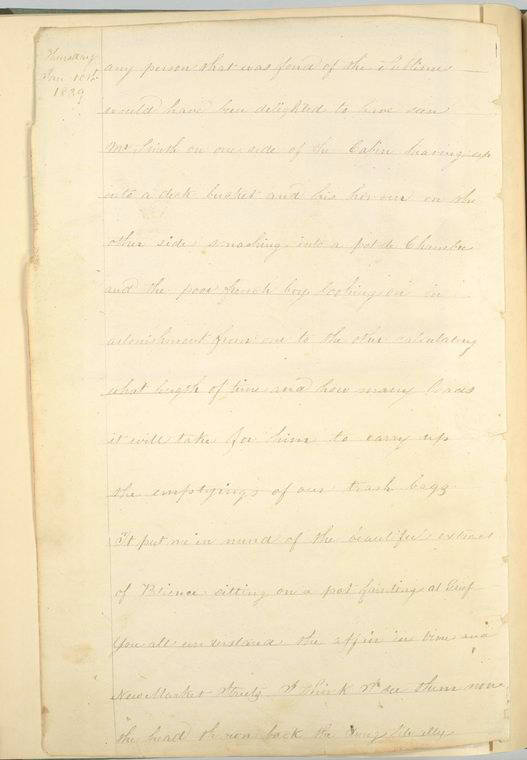 Thursday
Jan 10th
1839
any person that was fond of the Sublime
would have been delighted to have seen
Mr Smith on one side of the Cabin heaving up
into a deck bucket and his honour on the
other side smashing into a pot de Chambre
and the poor french boy looking on in
astonishment from one to the other calculating
what length of time and how many loads
it will take for him to carry up
the emptyings of our trash bags
It put me in mind of the beautiful extract
of sitting on a pot fainting at
You all understand the affair in Vine and
New Market Streets I think I see them now
the head thrown back the